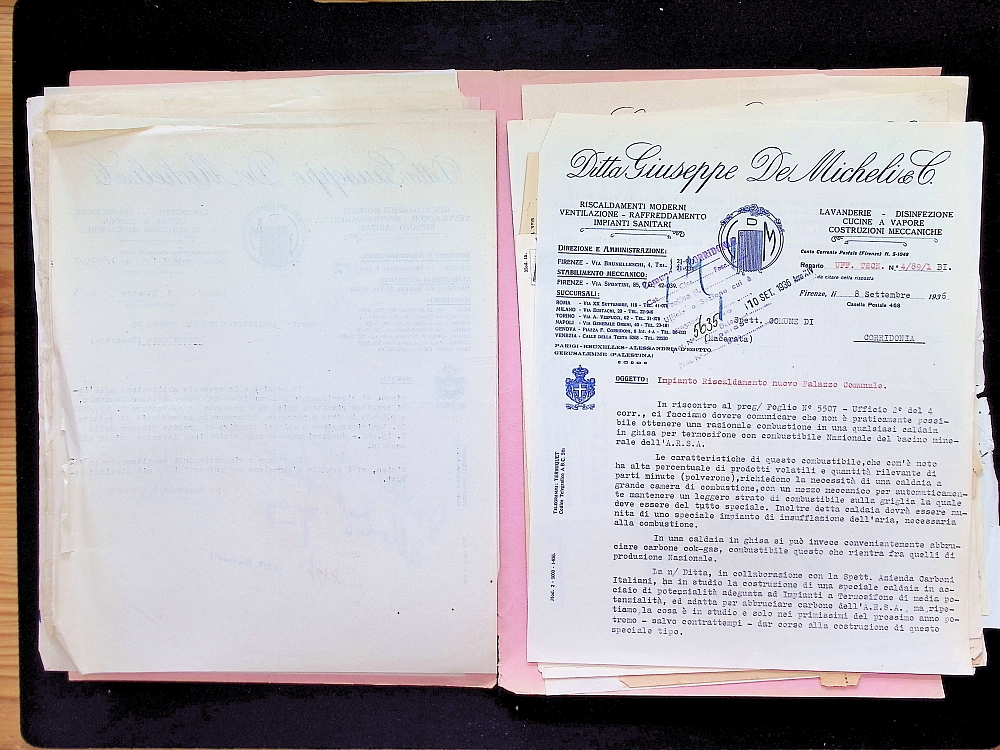 Ditta Giuseppe De Micheli & C.
RISCALDAMENTI MODERNI
VENTILAZIONE - RAFFREDDAMENTO
IMPIANTI SANITARI
LAVANDERIE - DISINFEZIONE
CUCINE A VAPORE
COSTRUZIONI MECCANICHE
DIREZIONE E AMMINISTRAZIONE:
FIRENZE - VIA BRUNELLESCHI, 4, TEL.
STABILIMENTO MECCANICO:
FIRENZE - VIA SPONTINI, 85,
SUCCURSALI:
ROMA - VIA XX SETTEMBRE, 118 - TEL.
MILANO - VIA EUSTACHI, 29 - TEL.
TORINO - VIA A. VESPUCCI, 62 - TEL.
NAPOLI - VIA GENERALE ORSINI, 40 - TEL.
GENOVA - PIAZZA F. CORRIDONI, 8 INT. 4-A - TEL.
VENEZIA - CALLE DELLA TESTA 6268 - TEL.
PARIGI-BRUXELLES-ALESSANDRIA D'EGITTO
GERUSALEMME (PALESTINA)
Conto Corrente Postale (Firenze) N. 5-1048
Reparto UFF. TECN. N.° 4/89/1 BI.
da citare nella risposta
Firenze, li 8 Settembre 1936
Casella Postale 468
10 SET. 1936
5635
Spett. COMUNE DI
CORRIDONIA
(Macerata)
OGGETTO: Impianto Riscaldamento nuovo Palazzo Comunale.
In riscontro al preg/ Foglio N° 5507 - Ufficio 2° del 4
corr., ci facciamo dovere comunicare che non è praticamente possi-
bile ottenere una razionale combustione in una qualsiasi caldaia
in ghisa per termosifone con combustibile Nazionale del bacino mine-
rale dell'A.R.S.A.
Le caratteristiche di questo combustibile,che com'è noto
ha alta percentuale di prodotti volatili e quantità rilevante di
parti minute (polverone),richiedono la necessità di una caldaia a
grande camera di combustione,con un mezzo meccanico per automaticamen-
te mantenere un leggero strato di combustibile sulla griglia la quale
deve essere del tutto speciale. Inoltre detta caldaia dovrà essere mu-
nita di uno speciale impianto di insufflazione dell'aria, necessaria
alla combustione.
In una caldaia in ghisa si può invece convenientemente abbru-
ciare carbone cok-gas, combustibile questo che rientra fra quelli di
produzione Nazionale.
La n/ Ditta, in collaborazione con la Spett. Azienda Carboni
Italiani, ha in studio la costruzione di una speciale caldaia in ac-
ciaio di potenzialità adeguata ad Impianti a Termosifone di media po-
tenzialità, ed adatta per abbruciare carbone dell'A.R.S.A., ma,ripe-
tiamo,la cosa è in studio e solo nei primissimi del prossimo anno po-
tremo - salvo contrattempi - dar corso alla costruzione di questo
speciale tipo.